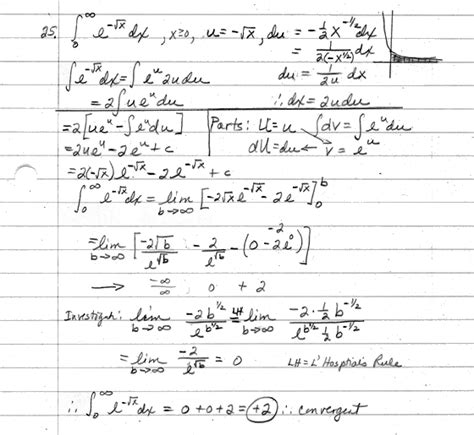 25. ∫₀^∞ e^(-√x) dx, x≥0, u = -√x, du = -½x^(-1/2) dx
= 1/(2(-x^(1/2))) dx
∫e^(-√x) dx = ∫e^u 2u du   du = 1/(2u) dx
= 2∫ue^u du   ∴ dx = 2u du
= 2[ue^u - ∫e^u du]   Parts: U = u   ∫dV = ∫e^u du
= 2ue^u - 2e^u + c   dU = du ← V = e^u
= 2(-√x)e^(-√x) - 2e^(-√x) + c
∫₀^∞ e^(-√x) dx = lim b→∞ [-2√x e^(-√x) - 2e^(-√x)]₀^b
= lim b→∞ [-2√b/e^(√b) - 2/e^(√b) - (0 - 2e⁰)]   -2
→ -∞/∞   0 + 2
Investigate: lim b→∞ -2b^(1/2)/e^(b^(1/2)) =LH lim b→∞ (-2·½ b^(-1/2))/(e^(b^(1/2)) ½ b^(-1/2))
= lim b→∞ -2/e^(√b) = 0   LH = L'Hospital's Rule
∴ ∫₀^∞ e^(-√x) dx = 0 + 0 + 2 = +2 ∴ convergent